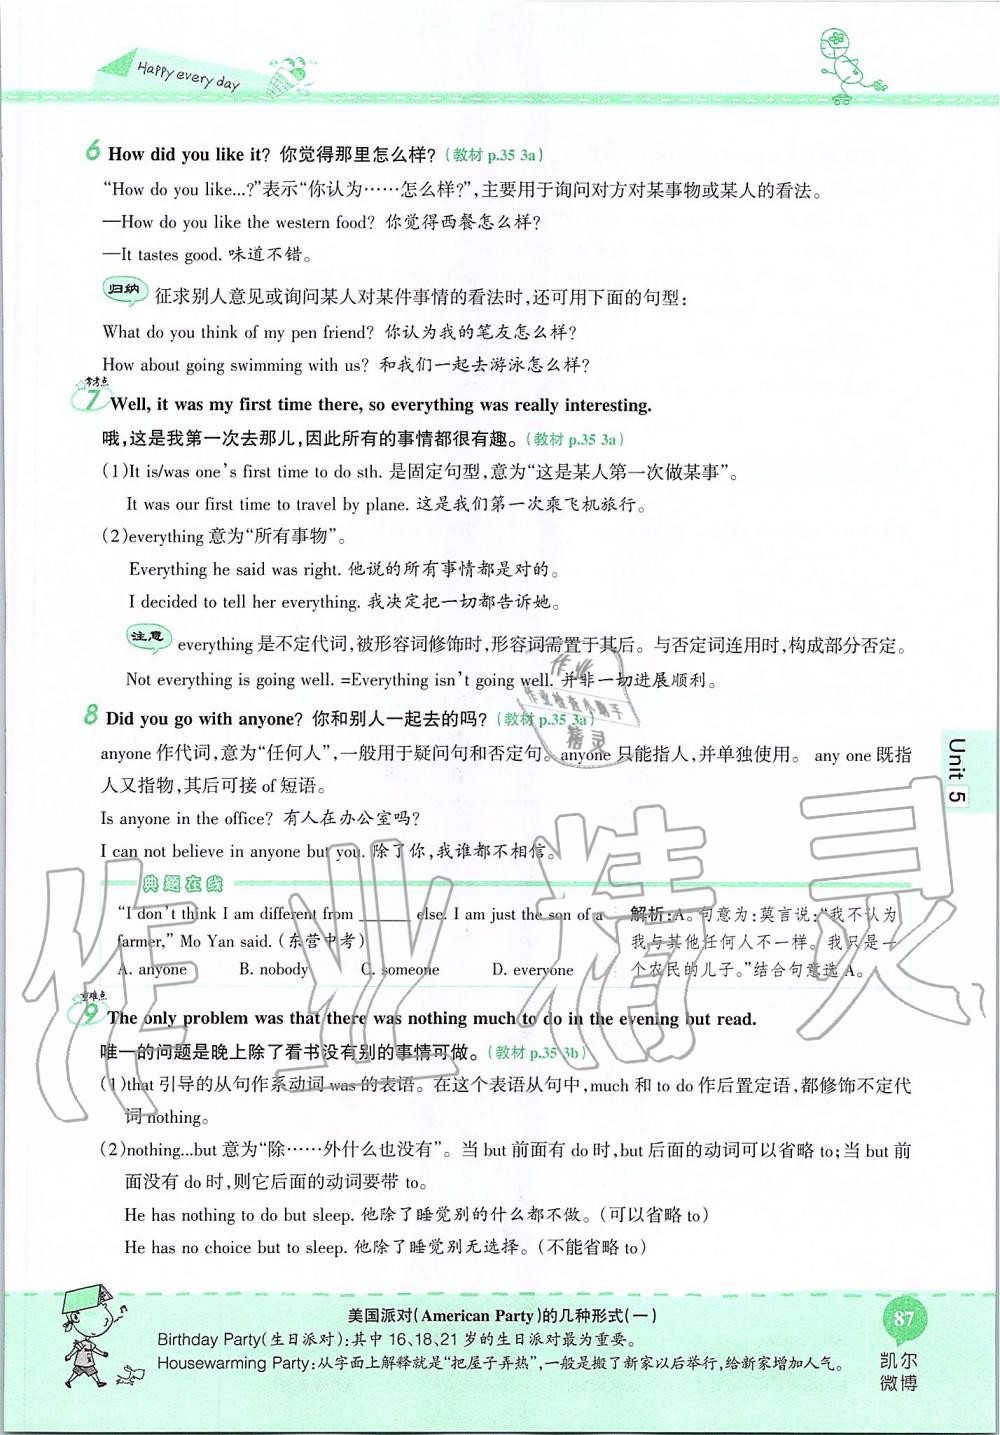 Happy every day
6 How did you like it? 你觉得那里怎么样?(教材 p.35 3a)
“How do you like...?”表示“你认为……怎么样?”,主要用于询问对方对某事物或某人的看法。
—How do you like the western food? 你觉得西餐怎么样?
—It tastes good. 味道不错。
归纳 征求别人意见或询问某人对某件事情的看法时,还可用下面的句型:
What do you think of my pen friend? 你认为我的笔友怎么样?
How about going swimming with us? 和我们一起去游泳怎么样?
常考点
7 Well, it was my first time there, so everything was really interesting.
哦,这是我第一次去那儿,因此所有的事情都很有趣。(教材 p.35 3a)
(1)It is/was one's first time to do sth. 是固定句型,意为“这是某人第一次做某事”。
It was our first time to travel by plane. 这是我们第一次乘飞机旅行。
(2)everything 意为“所有事物”。
Everything he said was right. 他说的所有事情都是对的。
I decided to tell her everything. 我决定把一切都告诉她。
注意 everything 是不定代词,被形容词修饰时,形容词需置于其后。与否定词连用时,构成部分否定。
Not everything is going well. =Everything isn't going well. 并非一切进展顺利。
8 Did you go with anyone? 你和别人一起去的吗?(教材 p.35 3a)
anyone 作代词,意为“任何人”,一般用于疑问句和否定句。anyone 只能指人,并单独使用。 any one 既指
人又指物,其后可接 of 短语。
Is anyone in the office? 有人在办公室吗?
I can not believe in anyone but you. 除了你,我谁都不相信。
典题在线
“I don't think I am different from ______ else. I am just the son of a
farmer,” Mo Yan said. (东营中考)
A. anyone B. nobody C. someone D. everyone
解析:A。句意为:莫言说:“我不认为
我与其他任何人不一样。我只是一
个农民的儿子。”结合句意选 A。
重难点
9 The only problem was that there was nothing much to do in the evening but read.
唯一的问题是晚上除了看书没有别的事情可做。(教材 p.35 3b)
(1)that 引导的从句作系动词 was 的表语。在这个表语从句中,much 和 to do 作后置定语,都修饰不定代
词 nothing。
(2)nothing...but 意为“除……外什么也没有”。当 but 前面有 do 时,but 后面的动词可以省略 to;当 but 前
面没有 do 时,则它后面的动词要带 to。
He has nothing to do but sleep. 他除了睡觉别的什么都不做。(可以省略 to)
He has no choice but to sleep. 他除了睡觉别无选择。(不能省略 to)
Unit 5
美国派对(American Party)的几种形式(一)
Birthday Party(生日派对):其中 16、18、21 岁的生日派对最为重要。
Housewarming Party:从字面上解释就是“把屋子弄热”,一般是搬了新家以后举行,给新家增加人气。
87
凯尔
微博
作业
作业检查小助手
精灵
作业精灵